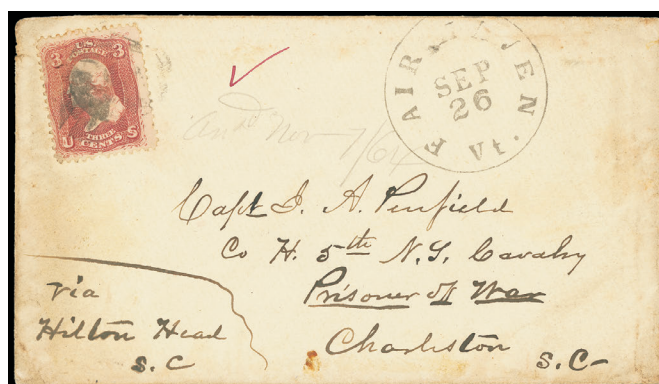 3 U.S. 3
POSTAGE
THREE
U CENTS S
FAIR HAVEN
SEP
26
Vt.
Ansd Nov 7/64
Capt J. A. Penfield
Co H. 5th N.Y. Cavalry
Prisoner of War
Charleston
S.C-
via
Hilton Head
S.C